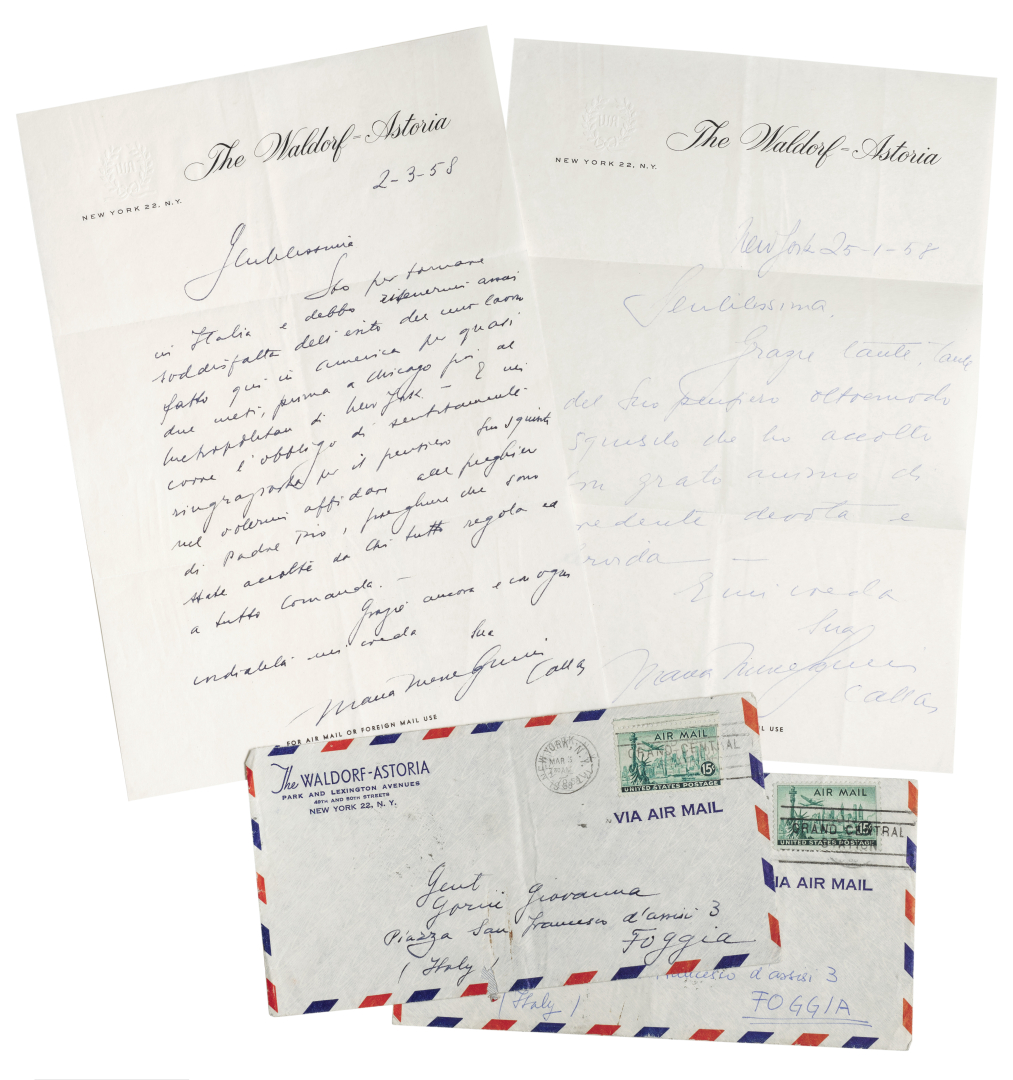 The Waldorf-Astoria
NEW YORK 22, N.Y.
2-3-58
Gentilissima
Sto per tornare
in Italia e debbo ritenermi assai
soddisfatta dell'esito del mio lavoro
fatto qui in america per quasi
due mesi, prima a Chicago poi al
Metropolitan di New York - E mi
corre l'obbligo di sentitamente
ringraziarla per il pensiero Suo squisito
nel volermi affidare alle preghiere
di Padre Pio, preghiere che sono
state accolte da Chi tutto regola ed
a tutto comanda. -
Grazie ancora e con ogni
cordialità mi creda Sua
Maria Meneghini
Callas
The Waldorf-Astoria
NEW YORK 22, N.Y.
New York 25-1-58
Gentilissima,
Grazie tante, tante
del Suo pensiero oltremodo
squisito che ho accolto
con grato animo di
credente devota e
fervida -
E mi creda
Sua
Maria Meneghini
Callas
FOR AIR MAIL OR FOREIGN MAIL USE
L USE
The WALDORF-ASTORIA
PARK AND LEXINGTON AVENUES
49TH AND 50TH STREETS
NEW YORK 22, N. Y.
NEW YORK, N.Y.
MAR 3
1958
AIR MAIL
GRAND CENTRAL
15¢
UNITED STATES POSTAGE
VIA AIR MAIL
Gent
Gorini Giovanna
Piazza San Francesco d'assisi 3
Foggia
(Italy)
AIR MAIL
GRAND CENTRAL
STATION
15¢
UNITED STATES POSTAGE
IA AIR MAIL
Francesco d'assisi 3
(Italy)
FOGGIA